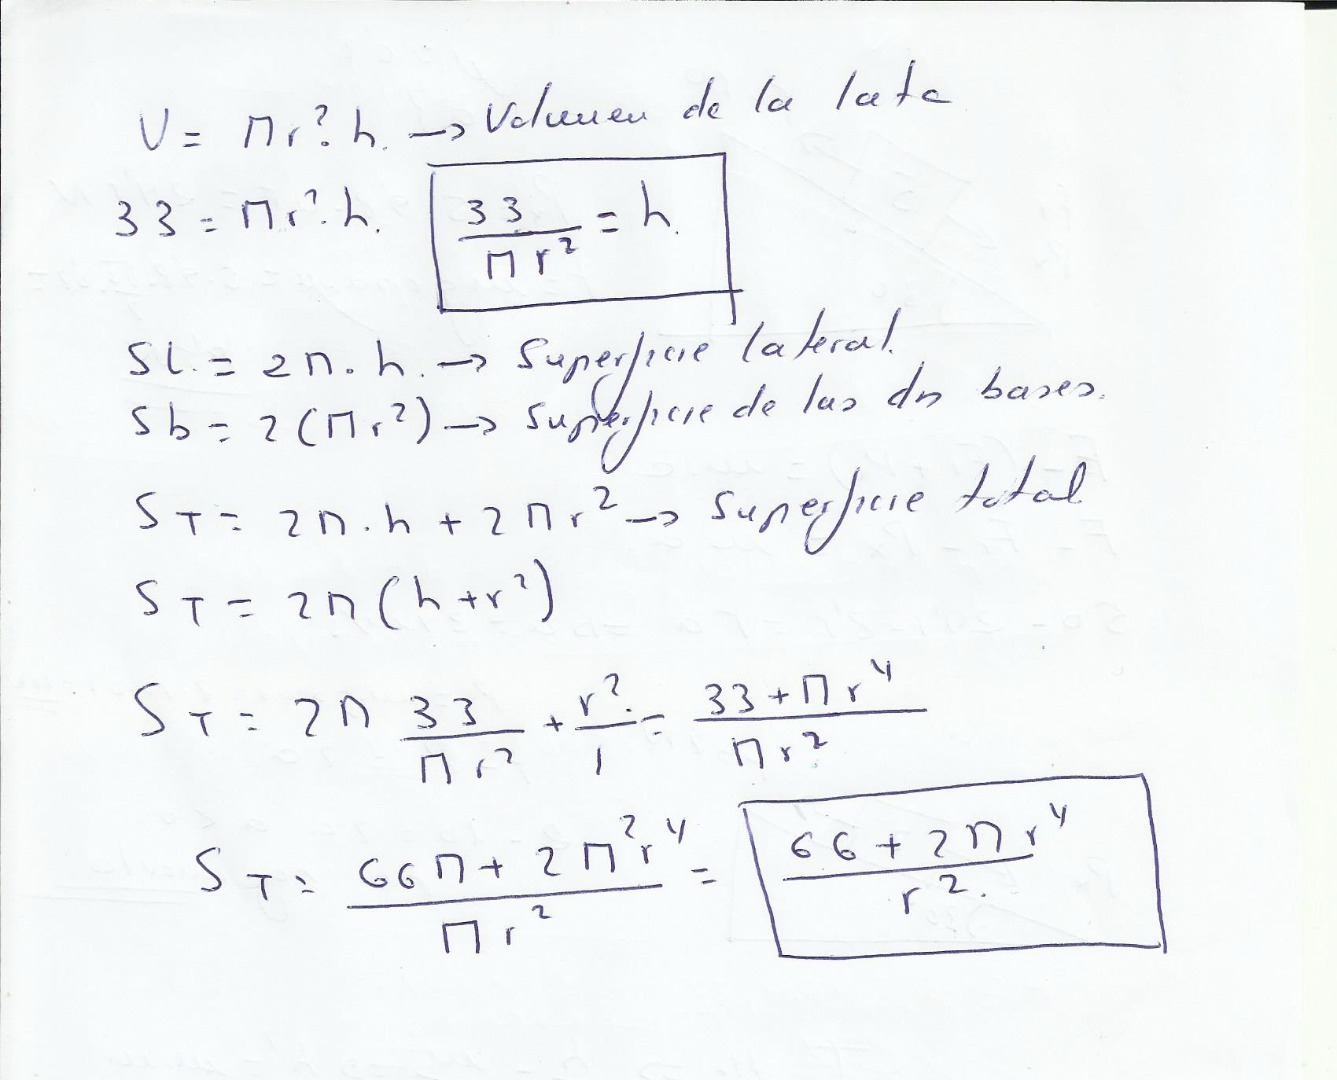 V = πr². h. → Volumen de la lata
33 = πr². h. 33/πr² = h.
SL. = 2π. h. → Superficie lateral.
Sb = 2(πr²) → Superficie de las dos bases.
ST = 2π. h + 2πr² → Superficie total
ST = 2π(h + r²)
ST = 2π 33/πr² + r²/1 = 33 + πr⁴/πr²
ST = 66π + 2π²r⁴/πr² = 66 + 2πr⁴/r².